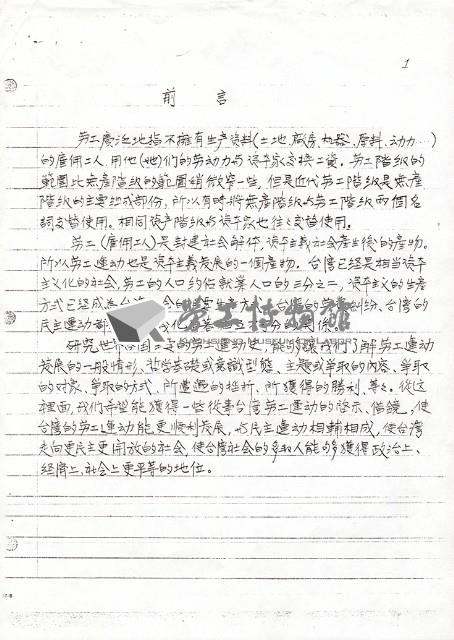 1
前 言
勞工廣泛地指不擁有生产资料(土地、廠房、机器、原料、动力…)
的雇佣工人,用他(她)们的劳动力与资本家交换工資。劳工階級的
範圍比無產階級的範圍稍微窄一些,但是近代劳工階級是無產
階級的主要組成部份,所以有時將無產階級与劳工階級兩個名
詞交替使用。相同資產階級与资本家也往往交替使用。
劳工(雇佣工人)是封建社会解体,资本主義社会產生後的產物。
所以劳工運动也是资本主義发展的一個產物。台湾已經是相当资本
主义化的社会,劳工的人口約佔就業人口的三分之二,资本主义的生產
方式已經成為台湾社会的主要生产方式。台湾的勞資糾紛、台湾的
民主運动都
勞工博物館
研究世界各國主要的劳工運动史,能夠讓我们了解劳工運动
发展的一般情形、哲学基礎或意識型態、主題或爭取的內容、爭取
的对象、爭取的方式、所遭遇的挫折、所獲得的勝利、等等,從这
裡面,我们希望能獲得一些從事台湾劳工運动的啓示、借鏡,使
台湾的劳工運动能更順利发展,与民主運动相輔相成,使台湾
走向更民主更開放的社会,使台湾社会的多数人能夠獲得政治上、
經濟上、社会上更平等的地位。